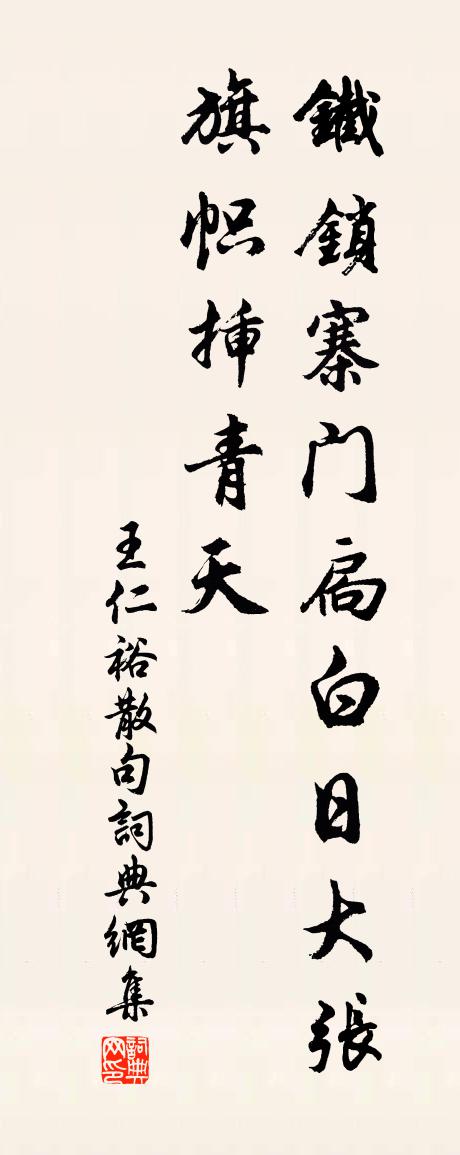 鐵鎖寨門扃白日大張
旗帜挿青天
王仁裕散句詞典網集
詞典网印